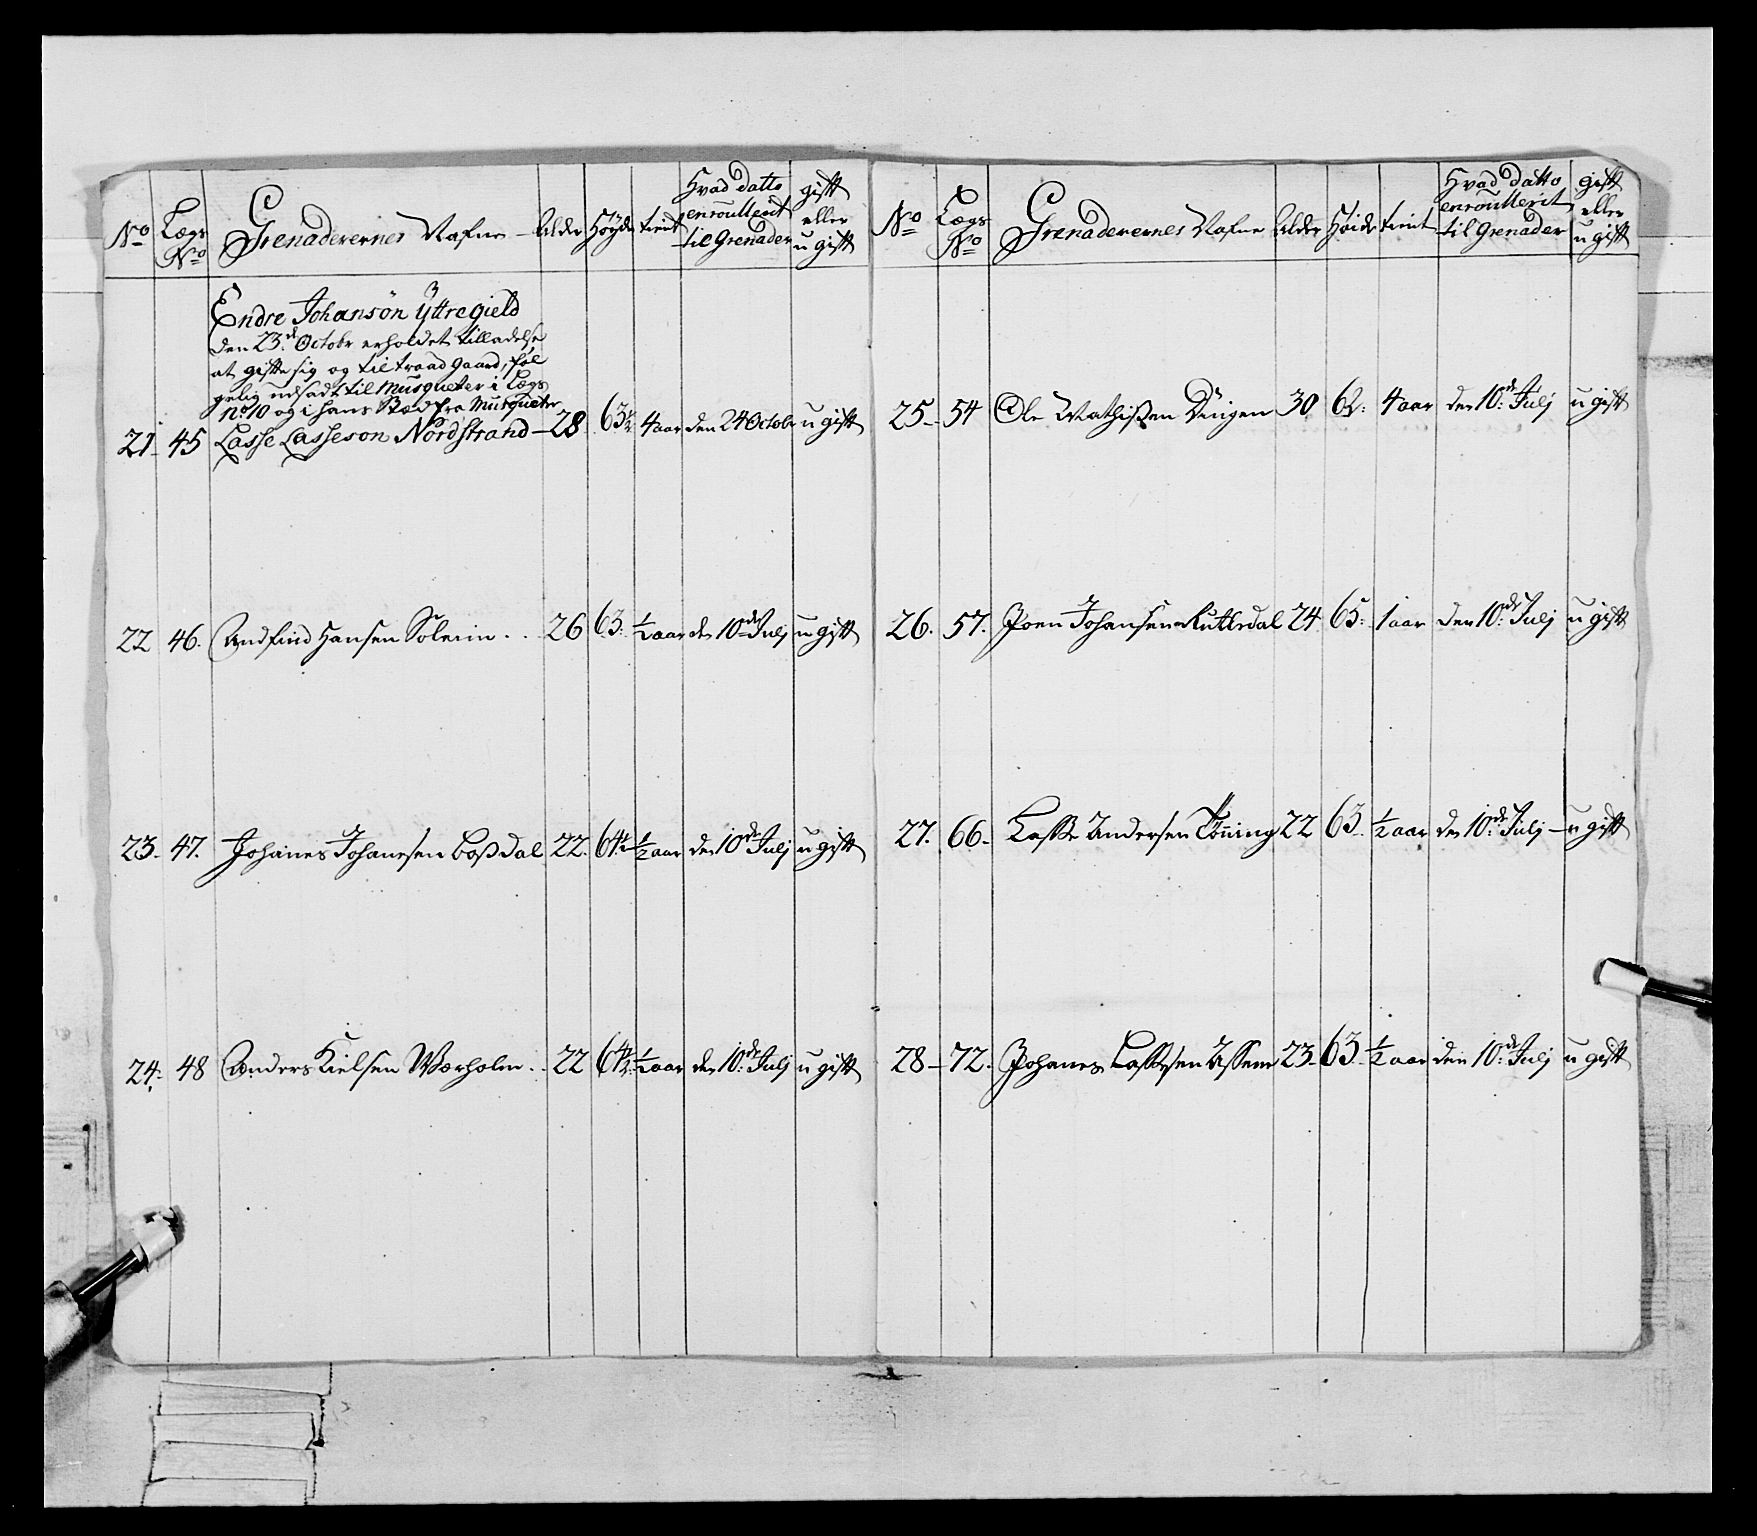 No Lægs No Grenaderernes Nafne Alder Høyde tient Hvad datto enroullerit til Grenader gift eller u gift
Endre Johansön Yttregield
den 23de Octobr erholdet tilladelse
at gifte sig og til traad gaard, føl
gelig udsadt til Musqueter i Lægs
No 10 og i hans Stæd fra Musqueter
21 45 Lasse Lasseson Nordstrand 28 63½ 4 aar den 24 Octobr u gift
22 46. Andfind Hansen Soleim 26 63. ½ aar den 10de Julj u gift
23. 47. Johanes Johanesen Bossdal 22. 64½ ½ aar den 10de Julj u gift
24. 48 Anders Kielsen Værholm 22 64½ ½ aar den 10de Julj u gift
No Lægs No Grenaderernes Nafne Alder Høide tient Hvad datto enroullerit til Grenader gift eller u gift
25. 54 Ole Mathissen 30 4 aar den 10de Julj u gift
26. 57. Joen Johansen Rutledal 24 65. 1 aar den 10de Julj u gift
27. 66. Lasse Andersen Tönning 22 63. ½ aar den 10de Julj u gift
28 72. Johanes Lassesen 23. 63. ½ aar den 10de Julj u gift